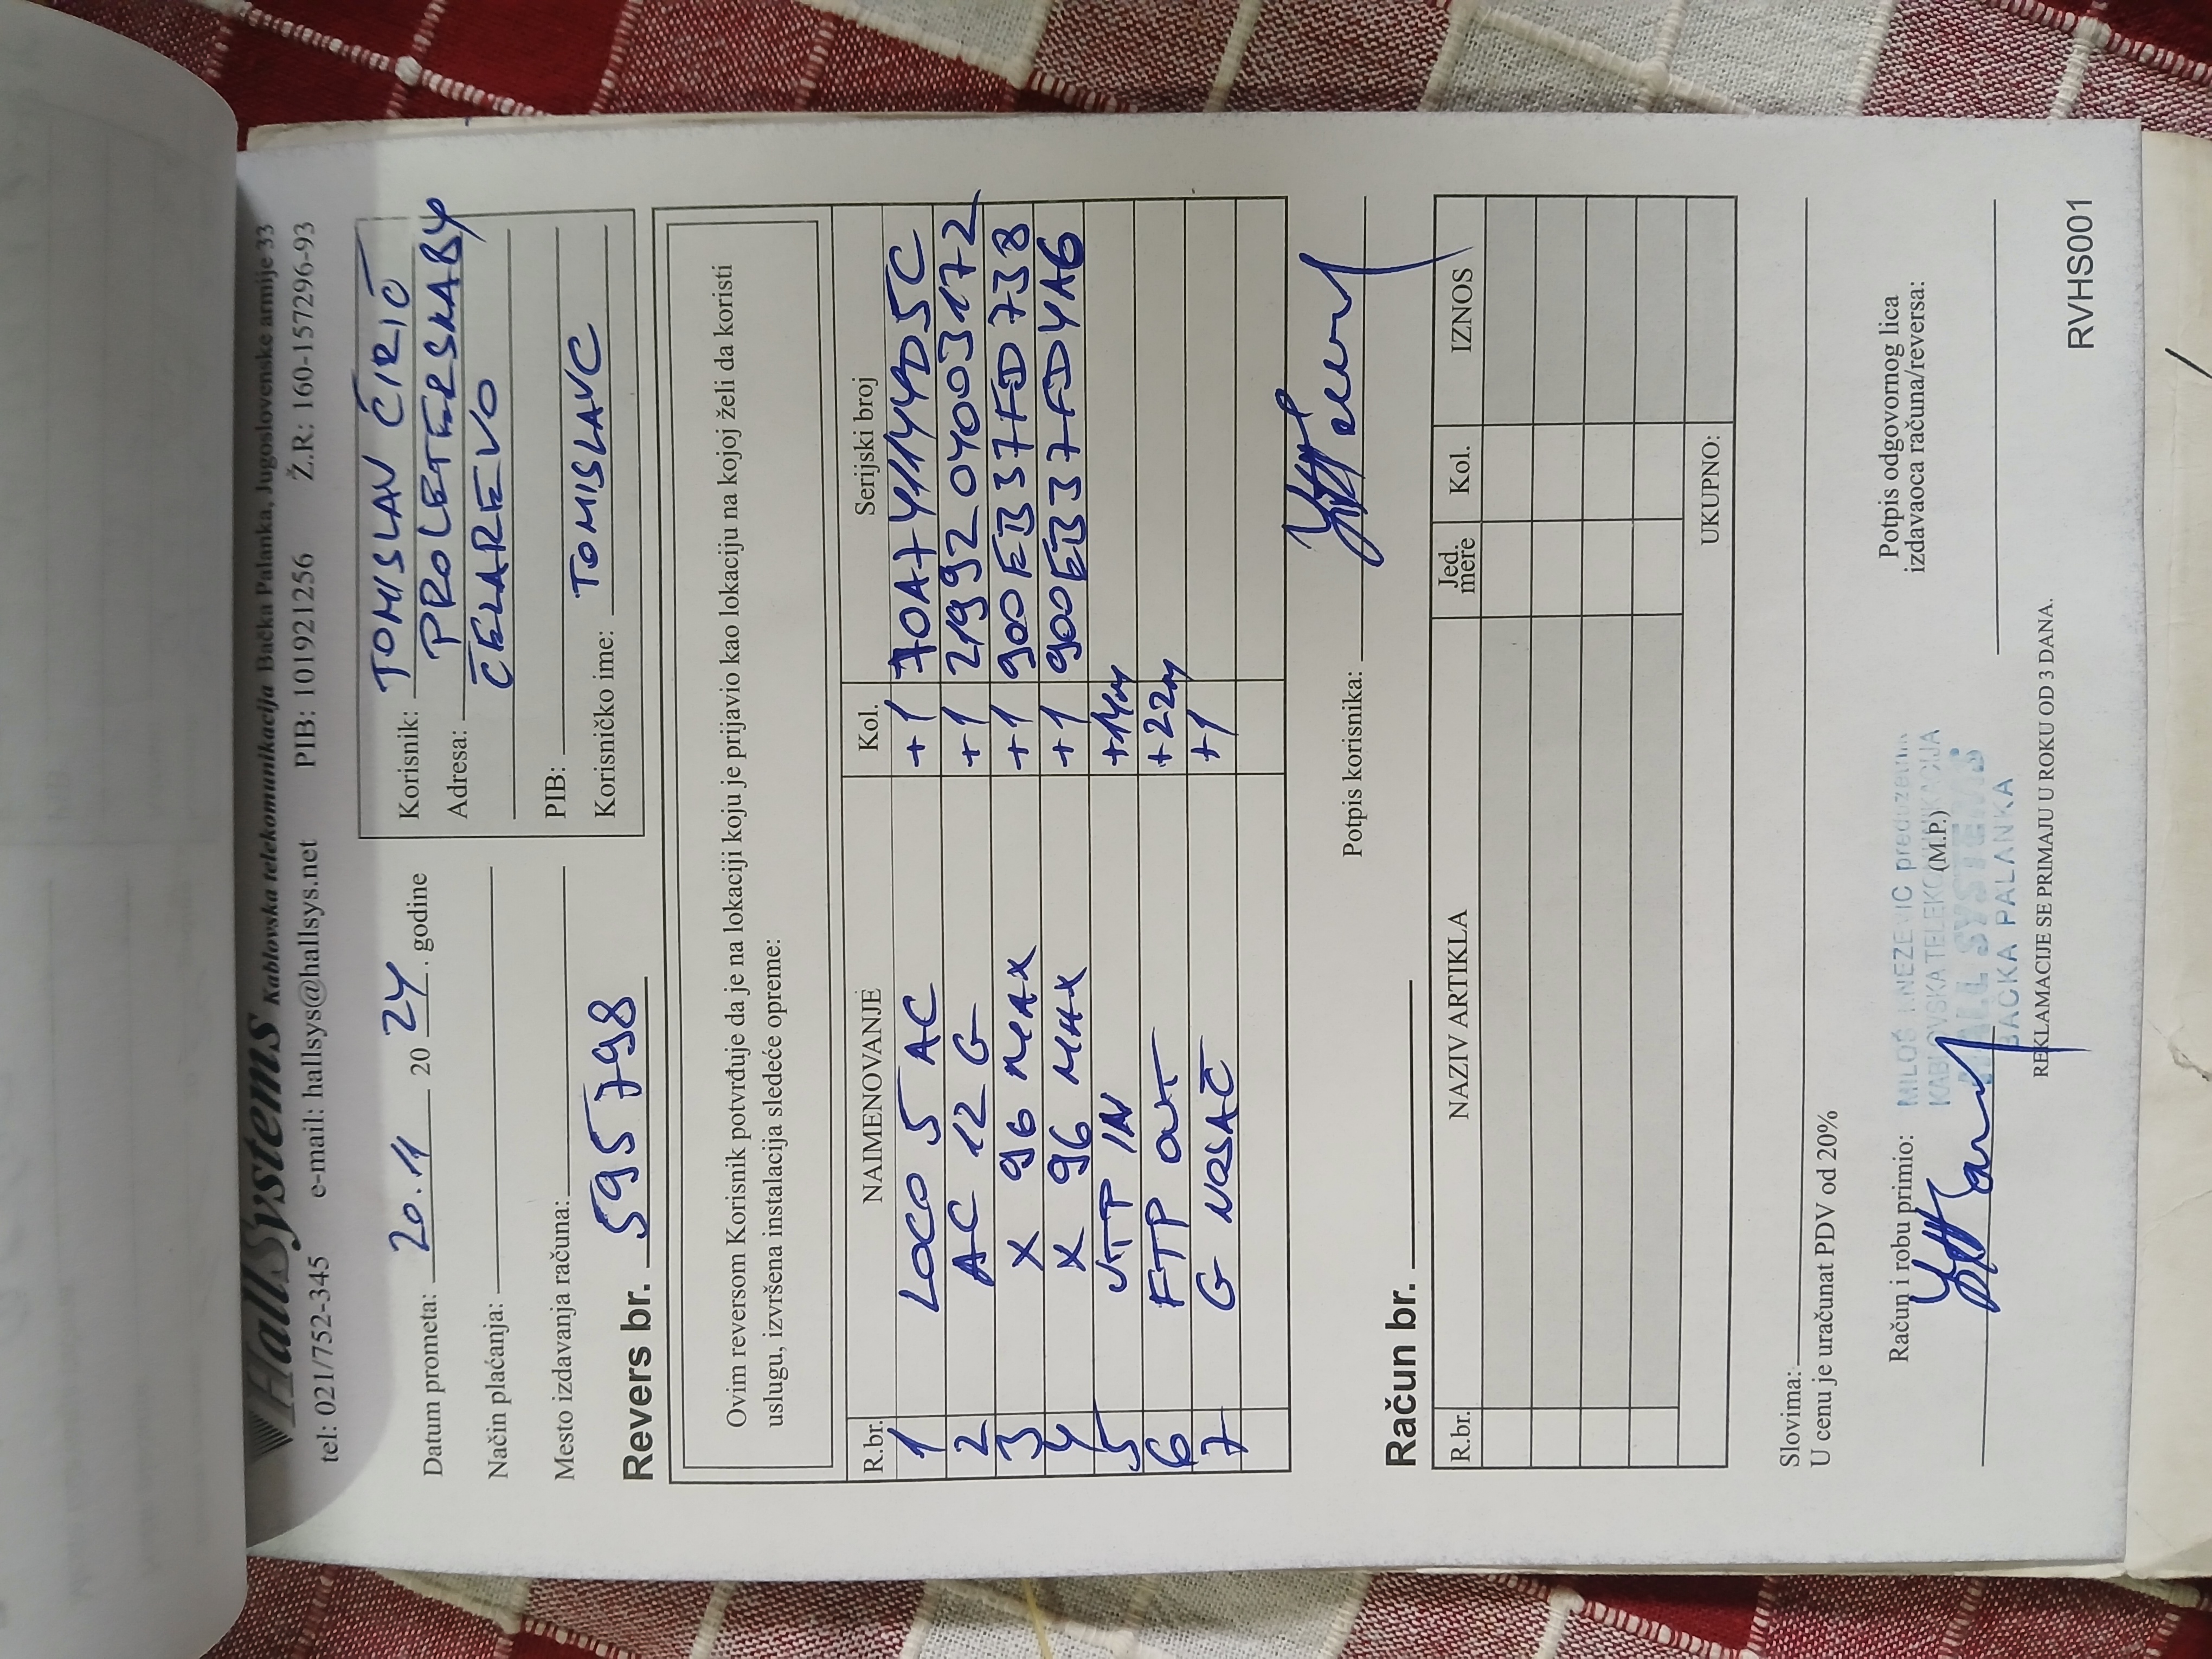 HallSystems Kablovska telekomunikacija Bačka Palanka, Jugoslovenske armije 33
tel: 021/752-345 e-mail: hallsys@hallsys.net PIB: 101921256 Ž.R: 160-157296-93
Datum prometa: 20.11 20 24. godine
Način plaćanja:
Mesto izdavanja računa:
Korisnik: TOMISLAV ĆIRIĆ
Adresa: PROLETERSKA 84
ČELAREVO
PIB:
Korisničko ime: TOMISLAVC
Revers br. 595798
Ovim reversom Korisnik potvrđuje da je na lokaciji koju je prijavio kao lokaciju na kojoj želi da koristi
uslugu, izvršena instalacija sledeće opreme:
R.br. NAIMENOVANJE Kol. Serijski broj
1 LOCO 5 AC +1 70A741144D5C
2 AC 12 G +1 2199204003172
3 X 96 MAX +1 900EB37FD738
4 X 96 MAX +1 900EB37FD4A6
5 UTP IN +14m
6 FTP OUT +22m
7 G NOSAČ +1
Potpis korisnika:
Račun br.
R.br. NAZIV ARTIKLA Jed. mere Kol. IZNOS
UKUPNO:
Slovima:
U cenu je uračunat PDV od 20%
Račun i robu primio:
Potpis odgovornog lica
izdavaoca računa/reversa:
MILOŠ KNEZEVIC preduzetnik
KABLOVSKA TELEKOMUNIKACIJA
(M.P.)
HALL SYSTEMS
BACKA PALANKA
REKLAMACIJE SE PRIMAJU U ROKU OD 3 DANA.
RVHS001